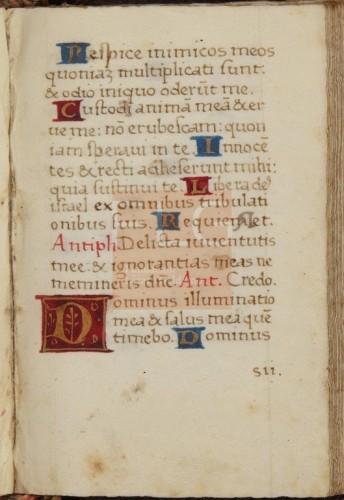 Respice inimicos meos
quoniaz multiplicati sunt:
& odio iniquo oderūt me.
Custodi animā meā & er
ue me: nō erubescam: quon
iam speraui in te. Innocē
tes & recti adheserunt mihi:
quia sustinui te. Libera de⁹
israel ex omnibus tribulati
onibus suis. Requiem et.
Antiph. Delicta iuuentutis
mee: & ignorantias meas ne
memineris dn̄e. Ant. Credo.
Dominus illuminatio
mea & salus mea quē
timebo. Dominus